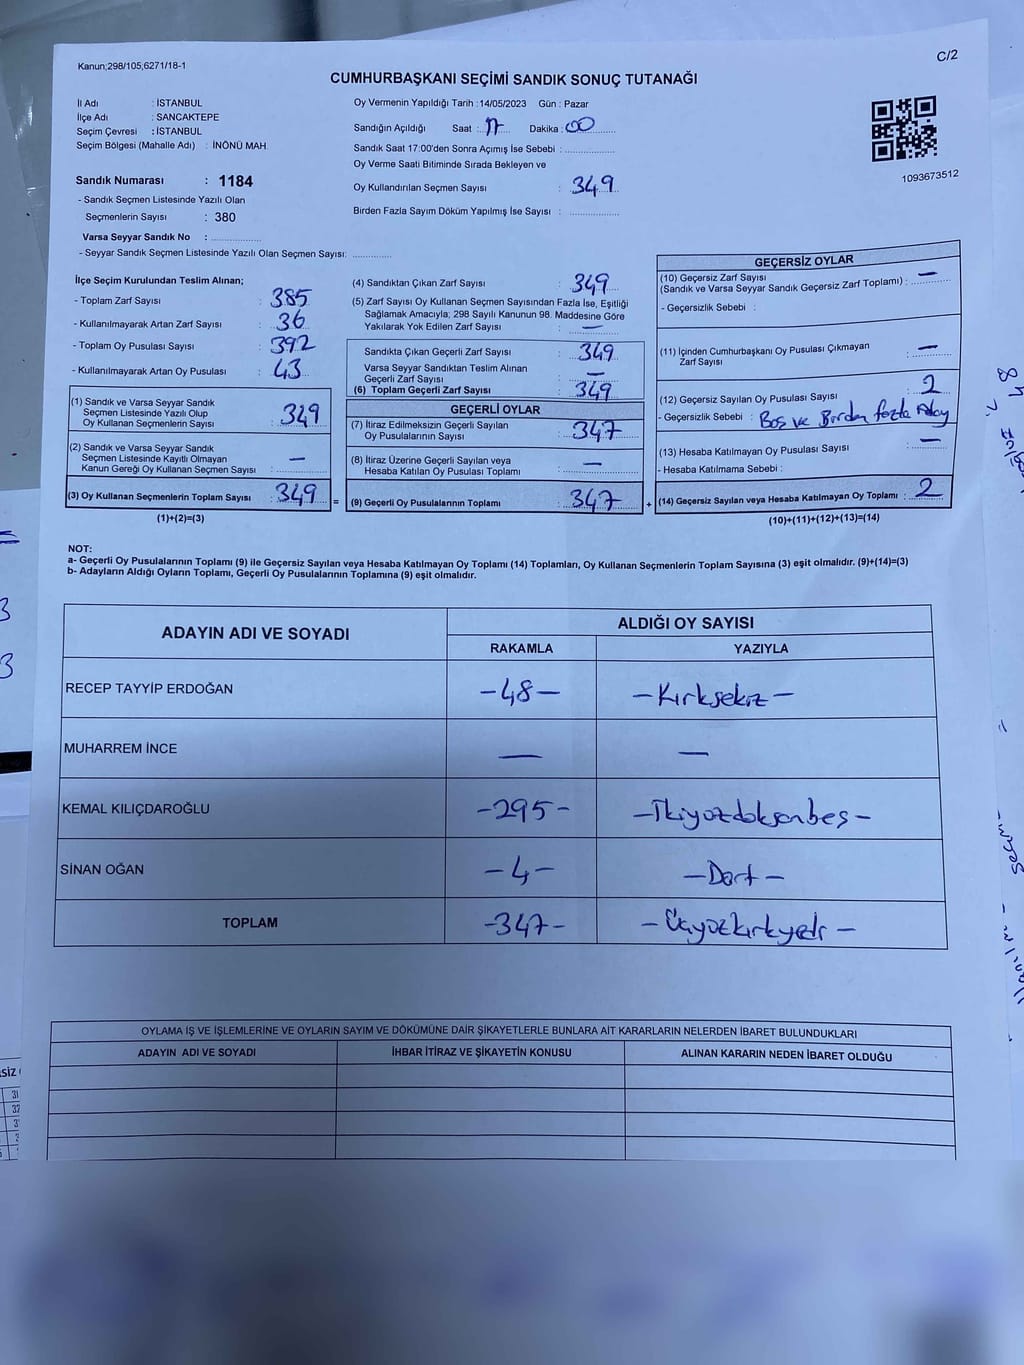 Kanun;298/105;6271/18-1
C/2
CUMHURBAŞKANI SEÇİMİ SANDIK SONUÇ TUTANAĞI
İl Adı : İSTANBUL
İlçe Adı : SANCAKTEPE
Seçim Çevresi : İSTANBUL
Seçim Bölgesi (Mahalle Adı) : İNÖNÜ MAH.
Oy Vermenin Yapıldığı Tarih : 14/05/2023 Gün : Pazar
Sandığın Açıldığı Saat : 17 Dakika : 00
Sandık Saat 17:00'den Sonra Açımış İse Sebebi :
Oy Verme Saati Bitiminde Sırada Bekleyen ve
Oy Kullandırılan Seçmen Sayısı : 349
Birden Fazla Sayım Döküm Yapılmış İse Sayısı :
1093673512
Sandık Numarası : 1184
- Sandık Seçmen Listesinde Yazılı Olan
Seçmenlerin Sayısı : 380
Varsa Seyyar Sandık No :
- Seyyar Sandık Seçmen Listesinde Yazılı Olan Seçmen Sayısı:
İlçe Seçim Kurulundan Teslim Alınan;
- Toplam Zarf Sayısı : 385
- Kullanılmayarak Artan Zarf Sayısı : 36
- Toplam Oy Pusulası Sayısı : 392
- Kullanılmayarak Artan Oy Pusulası : 43
(1) Sandık ve Varsa Seyyar Sandık
Seçmen Listesinde Yazılı Olup
Oy Kullanan Seçmenlerin Sayısı : 349
(2) Sandık ve Varsa Seyyar Sandık
Seçmen Listesinde Kayıtlı Olmayan
Kanun Gereği Oy Kullanan Seçmen Sayısı : —
(3) Oy Kullanan Seçmenlerin Toplam Sayısı : 349 =
(1)+(2)=(3)
(4) Sandıktan Çıkan Zarf Sayısı : 349
(5) Zarf Sayısı Oy Kullanan Seçmen Sayısından Fazla İse, Eşitliği
Sağlamak Amacıyla; 298 Sayılı Kanunun 98. Maddesine Göre
Yakılarak Yok Edilen Zarf Sayısı : —
Sandıkta Çıkan Geçerli Zarf Sayısı : 349
Varsa Seyyar Sandıktan Teslim Alınan
Geçerli Zarf Sayısı : —
(6) Toplam Geçerli Zarf Sayısı : 349
GEÇERLİ OYLAR
(7) İtiraz Edilmeksizin Geçerli Sayılan
Oy Pusulalarının Sayısı : 347
(8) İtiraz Üzerine Geçerli Sayılan veya
Hesaba Katılan Oy Pusulası Toplamı : —
(9) Geçerli Oy Pusulalarının Toplamı : 347 +
GEÇERSİZ OYLAR
(10) Geçersiz Zarf Sayısı
(Sandık ve Varsa Seyyar Sandık Geçersiz Zarf Toplamı) : —
- Geçersizlik Sebebi :
(11) İçinden Cumhurbaşkanı Oy Pusulası Çıkmayan
Zarf Sayısı : —
(12) Geçersiz Sayılan Oy Pusulası Sayısı : 2
- Geçersizlik Sebebi : Boş ve Birden fazla Aday
(13) Hesaba Katılmayan Oy Pusulası Sayısı : —
- Hesaba Katılmama Sebebi :
(14) Geçersiz Sayılan veya Hesaba Katılmayan Oy Toplamı : 2
(10)+(11)+(12)+(13)=(14)
NOT:
a- Geçerli Oy Pusulalarının Toplamı (9) ile Geçersiz Sayılan veya Hesaba Katılmayan Oy Toplamı (14) Toplamları, Oy Kullanan Seçmenlerin Toplam Sayısına (3) eşit olmalıdır. (9)+(14)=(3)
b- Adayların Aldığı Oyların Toplamı, Geçerli Oy Pusulalarının Toplamına (9) eşit olmalıdır.
ADAYIN ADI VE SOYADI
ALDIĞI OY SAYISI
RAKAMLA YAZIYLA
RECEP TAYYİP ERDOĞAN -48- -Kırksekiz-
MUHARREM İNCE — —
KEMAL KILIÇDAROĞLU -295- -İkiyüzdoksanbeş-
SİNAN OĞAN -4- -Dört-
TOPLAM -347- -Üçyüzkırkyedi-
OYLAMA İŞ VE İŞLEMLERİNE VE OYLARIN SAYIM VE DÖKÜMÜNE DAİR ŞİKAYETLERLE BUNLARA AİT KARARLARIN NELERDEN İBARET BULUNDUKLARI
ADAYIN ADI VE SOYADI İHBAR İTİRAZ VE ŞİKAYETİN KONUSU ALINAN KARARIN NEDEN İBARET OLDUĞU